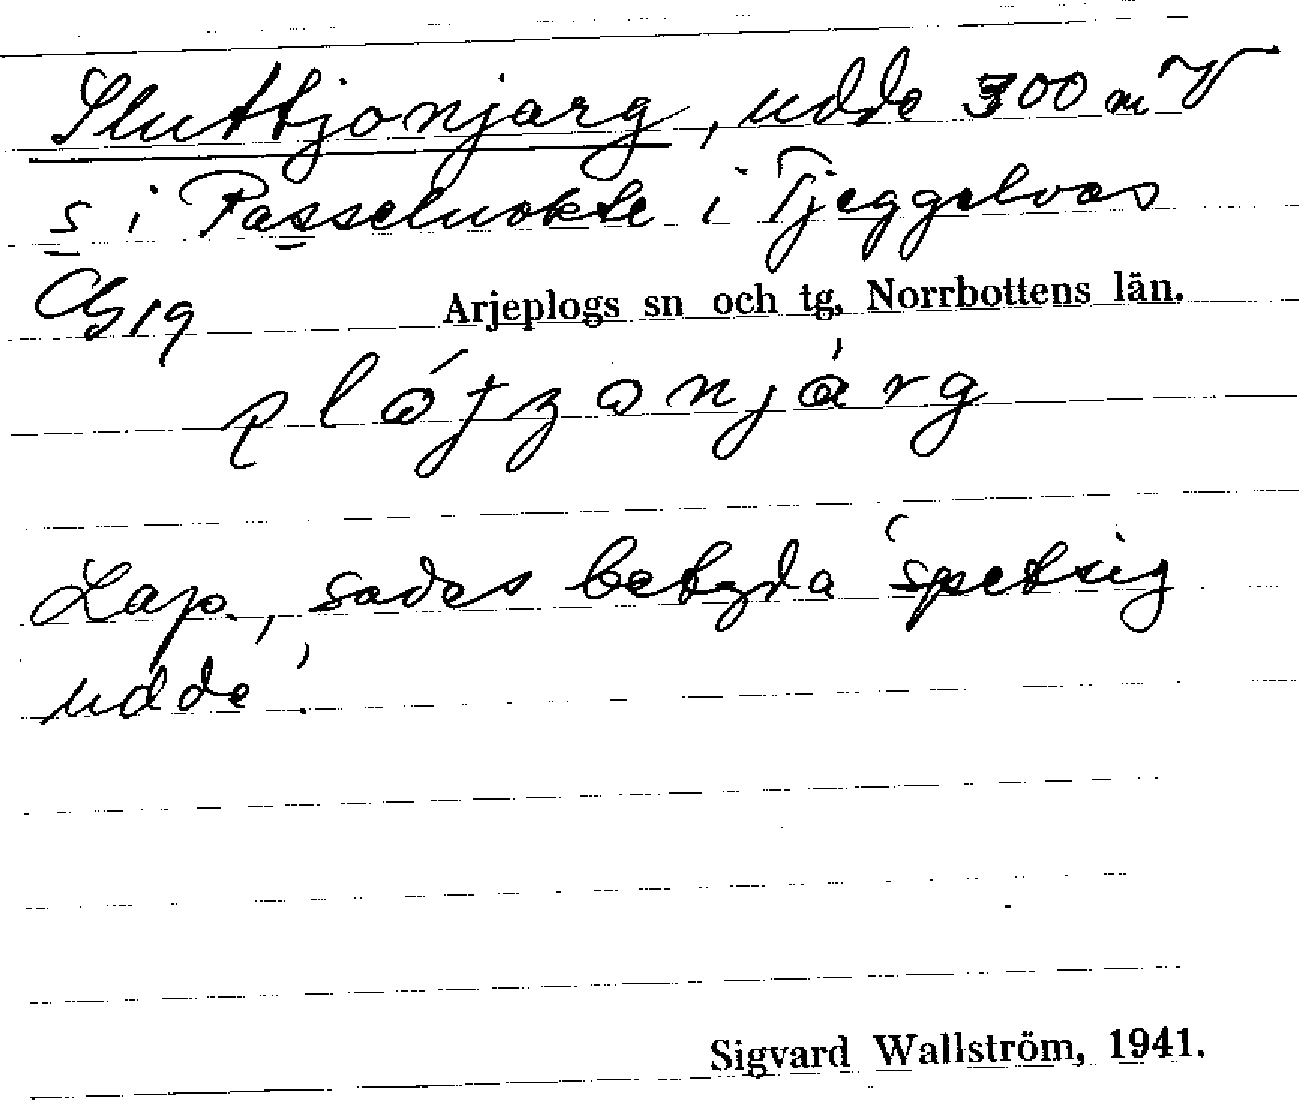 Sluttjonjarg, udde 300 m V
s i Passeluokte i Tjeggelvas
Arjeplogs sn och tg, Norrbottens län.
Lap., sades betyda 'spetsig
udde'.
Sigvard Wallström, 1941.